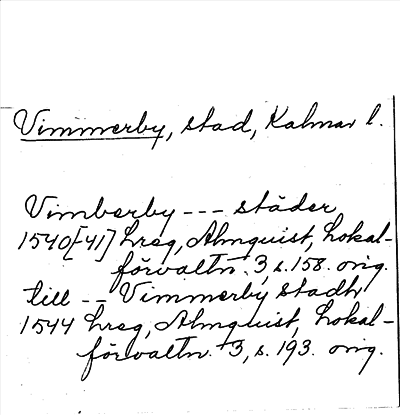 Vimmerby, stad, Kalmar l.
Vimberby --- städer
1540[-41] hreg, Almquist, Lokal-
förvaltn. 3, s. 158. orig.
till -- Vimmerby stadh
1544 hreg, Almquist, Lokal-
förvaltn. 3, s. 193. orig.